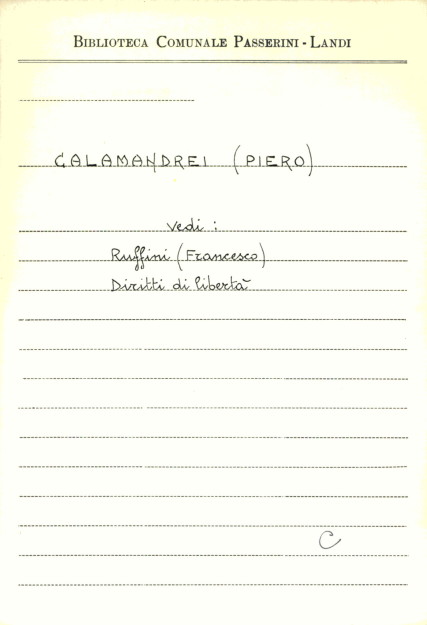 BIBLIOTECA COMUNALE PASSERINI - LANDI
CALAMANDREI (PIERO)
vedi :
Ruffini (Francesco)
Diritti di libertà
C